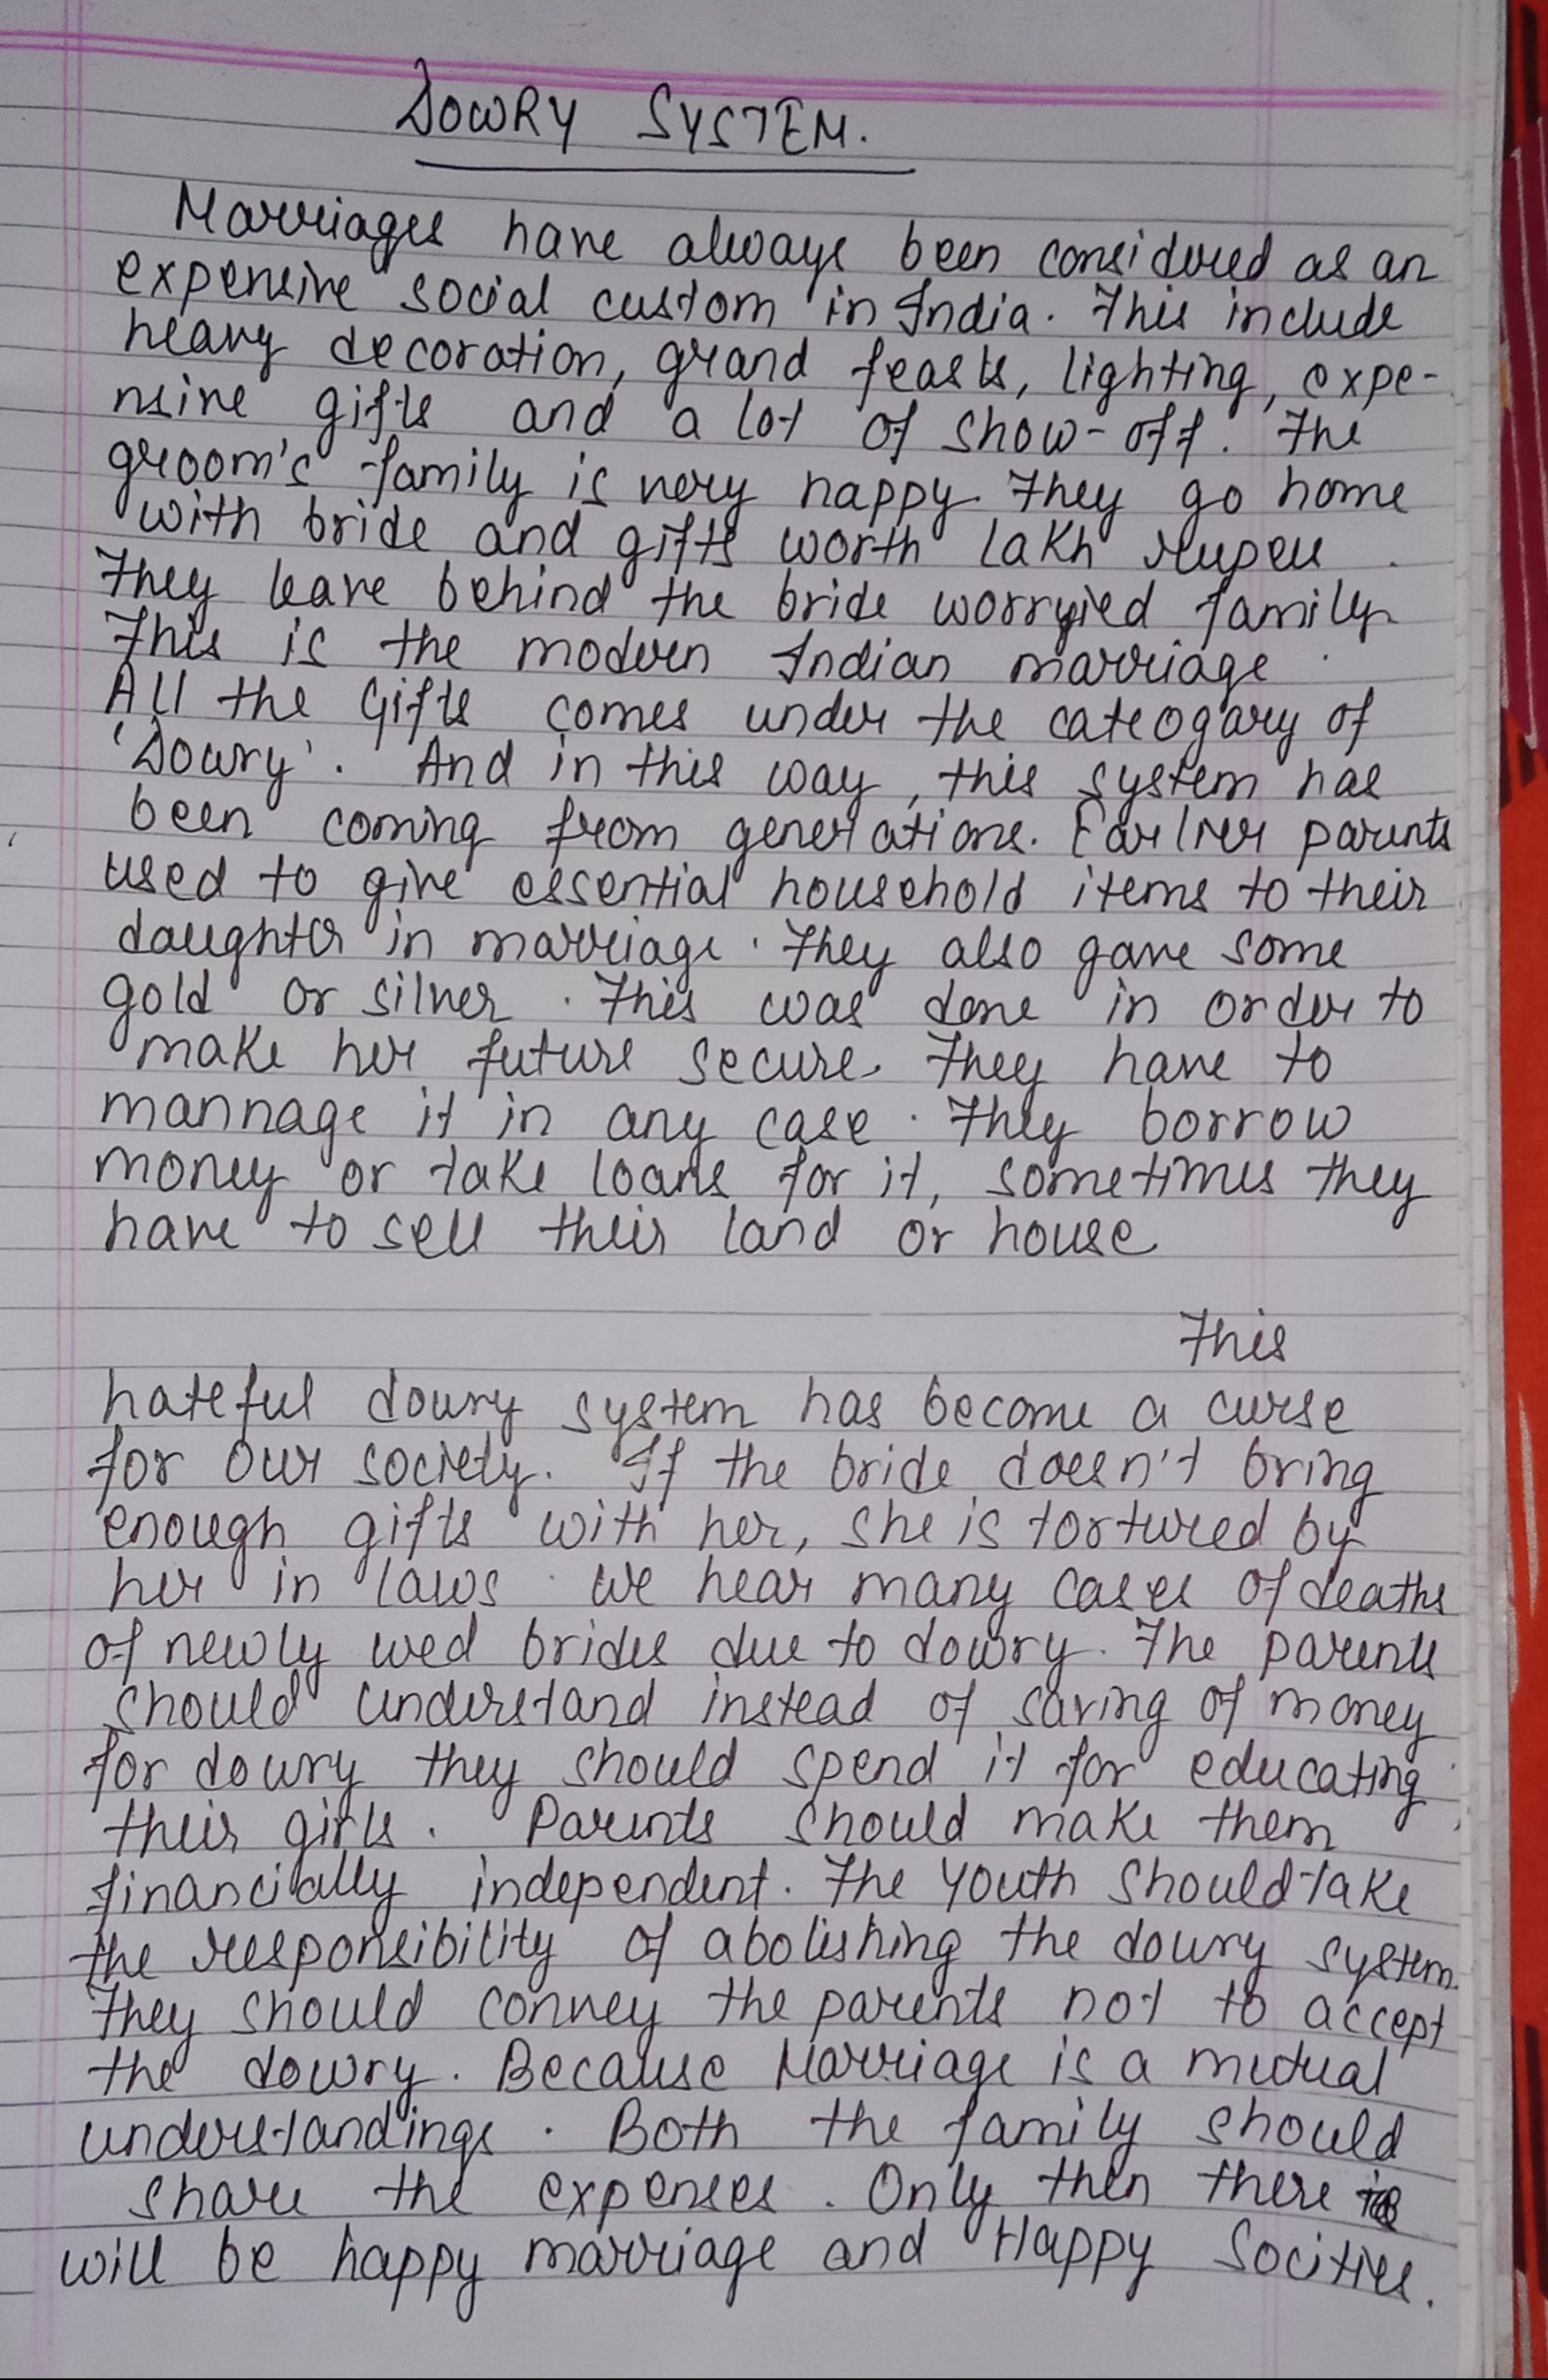 DOWRY SYSTEM.
Marriages have always been considered as an
expensive social custom in India. This include
heavy decoration, grand feasts, lighting, expe-
nsive gifts and a lot of show-off. The
groom's family is very happy. They go home
with bride and gifts worth lakh rupees.
They leave behind the bride worryied family.
This is the modern Indian marriage.
All the Gifts comes under the cateogary of
'Dowry'. And in this way, this system has
been coming from generations. Earlier parents
used to give essential household items to their
daughter in marriage. They also gave some
gold or silver. This was done in order to
make her future secure. They have to
mannage it in any case. They borrow
money or take loans for it, sometimes they
have to sell their land or house
This
hateful dowry system has become a curse
for our society. If the bride doesn't bring
enough gifts with her, she is tortured by
her in laws. We hear many cases of deaths
of newly wed brides due to dowry. The parents
should understand instead of saving of money
for dowry they should spend it for educating
their girls. Parents should make them
financially independent. The Youth should take
the responsibility of abolishing the dowry system.
They should convey the parents not to accept
the dowry. Because Marriage is a mutual
understandings. Both the family should
share the expenses. Only then there
will be happy marriage and Happy Socities.